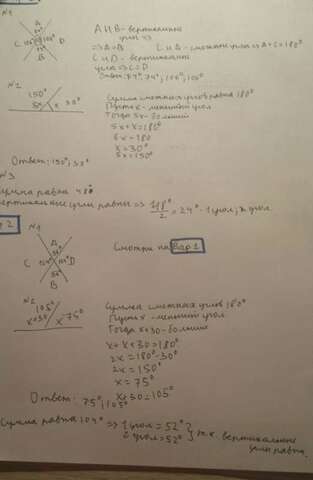 №1
A и B - вертикальные
углы =>
=> A = B
C и A - смежные углы => A + C = 180°
C и D - вертикальные
углы => C = D
Ответ: 74°, 74°, 106°, 106°
A
C 106° 106° D
B
№2
150°
5x x 30°
Сумма смежных углов равна 180°
Пусть x - меньший угол
Тогда 5x - больший
5x + x = 180°
6x = 180
x = 30°
5x = 150°
Ответ: 150°; 30°
№3
сумма равна
вертикальные углы равны =>
= 24° - 1 угол
2
№1
Смотри на Вар 1
A
C D
B
№2
105°
x+30° x 75°
Сумма смежных углов 180°
Пусть x - меньший угол.
Тогда x+30 - больший
x + x + 30 = 180°
2x = 180° - 30°
2x = 150°
x = 75°
x + 30 = 105°
Ответ: 75°; 105°
Сумма равна 104° => 1 угол = 52°
2 угол = 52° } т.к. вертикальные
углы равны.